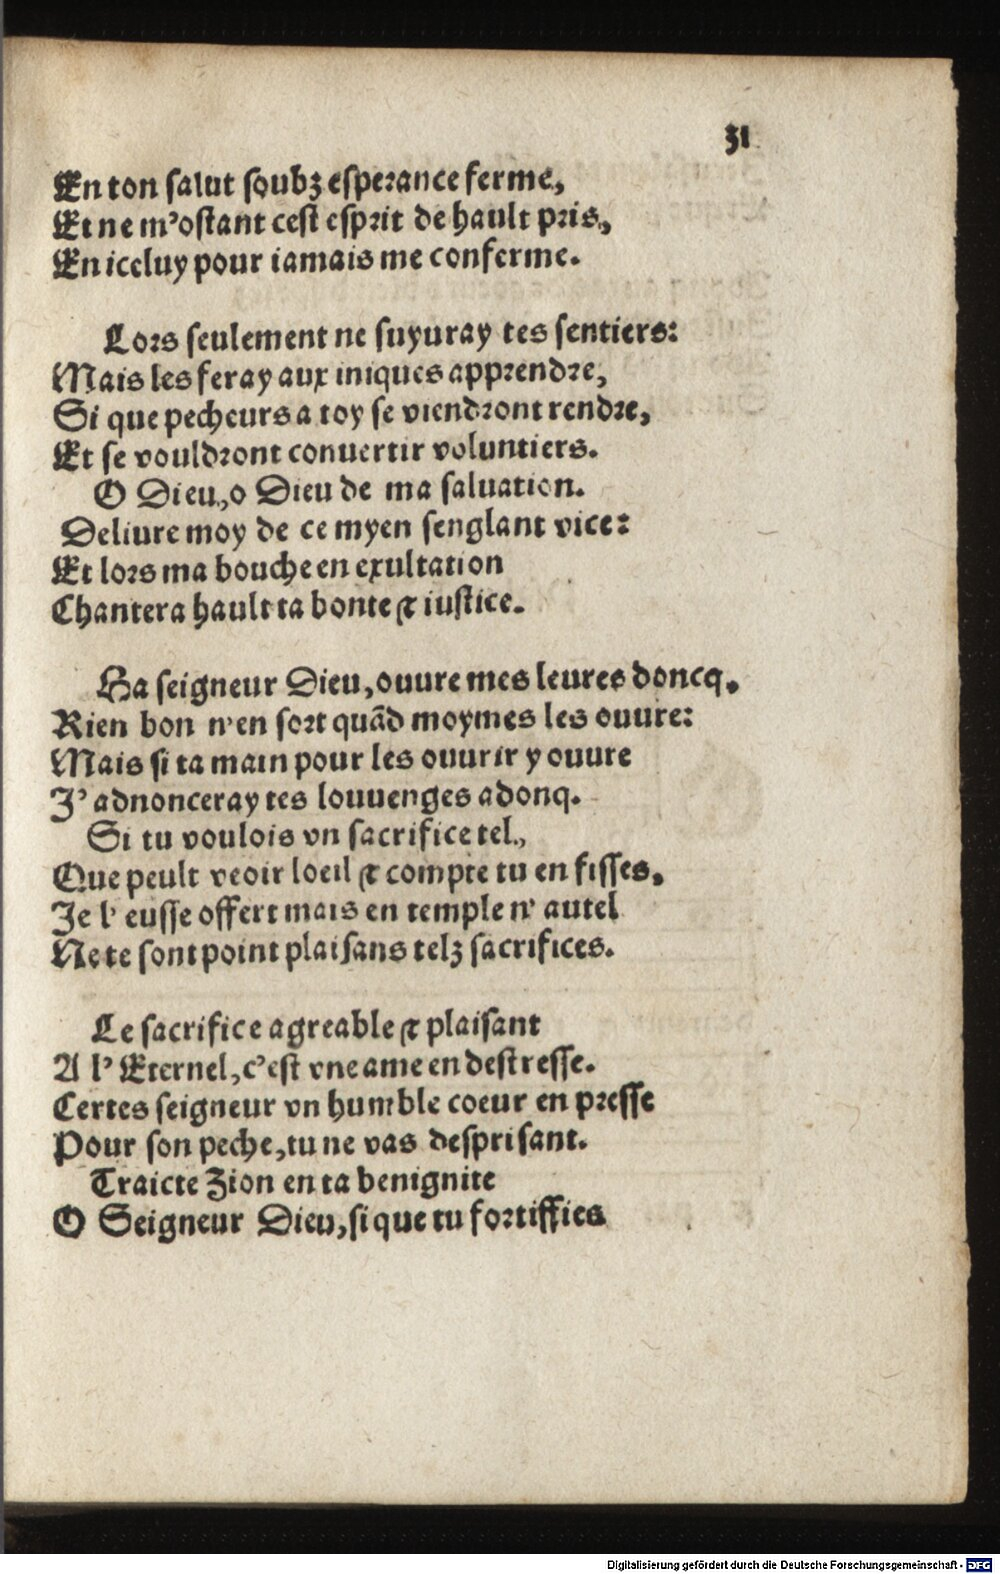 31
En ton salut soubz esperance ferme,
Et ne m'ostant cest esprit de hault pris,
En iceluy pour iamais me conferme.
Lors seulement ne suyuray tes sentiers:
Mais les feray aux iniques apprendre,
Si que pecheurs a toy se viendront rendre,
Et se vouldront conuertir voluntiers.
O Dieu, o Dieu de ma saluation.
Deliure moy de ce myen senglant vice:
Et lors ma bouche en exultation
Chantera hault ta bonte & iustice.
Ha seigneur Dieu, ouure mes leures doncq.
Rien bon n'en sort quād moymes les ouure:
Mais si ta main pour les ouurir y ouure
J'adnonceray tes louuenges adonq.
Si tu voulois vn sacrifice tel,
Que peult veoir loeil & compte tu en fisses,
Je l'eusse offert mais en temple n'autel
Ne te sont point plaisans telz sacrifices.
Le sacrifice agreable & plaisant
A l'Eternel, c'est vne ame en destresse.
Certes seigneur vn humble coeur en presse
Pour son peche, tu ne vas desprisant.
Traicte Zion en ta benignite
O Seigneur Dieu, si que tu fortiffies
Digitalisierung gefördert durch die Deutsche Forschungsgemeinschaft - DFG